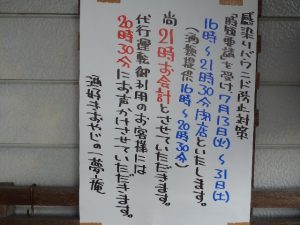 感染リバウンド防止対策
時短要請を受け、7月13日(火)〜31日(土)
16時〜21時30分閉店といたします。
(酒類提供16時〜20時30分)
尚21時お会計とさせていただきます。
代行運転御利用のお客様には
20時30分にお声がけさせていただきます。
酒好きおたいの一夢庵